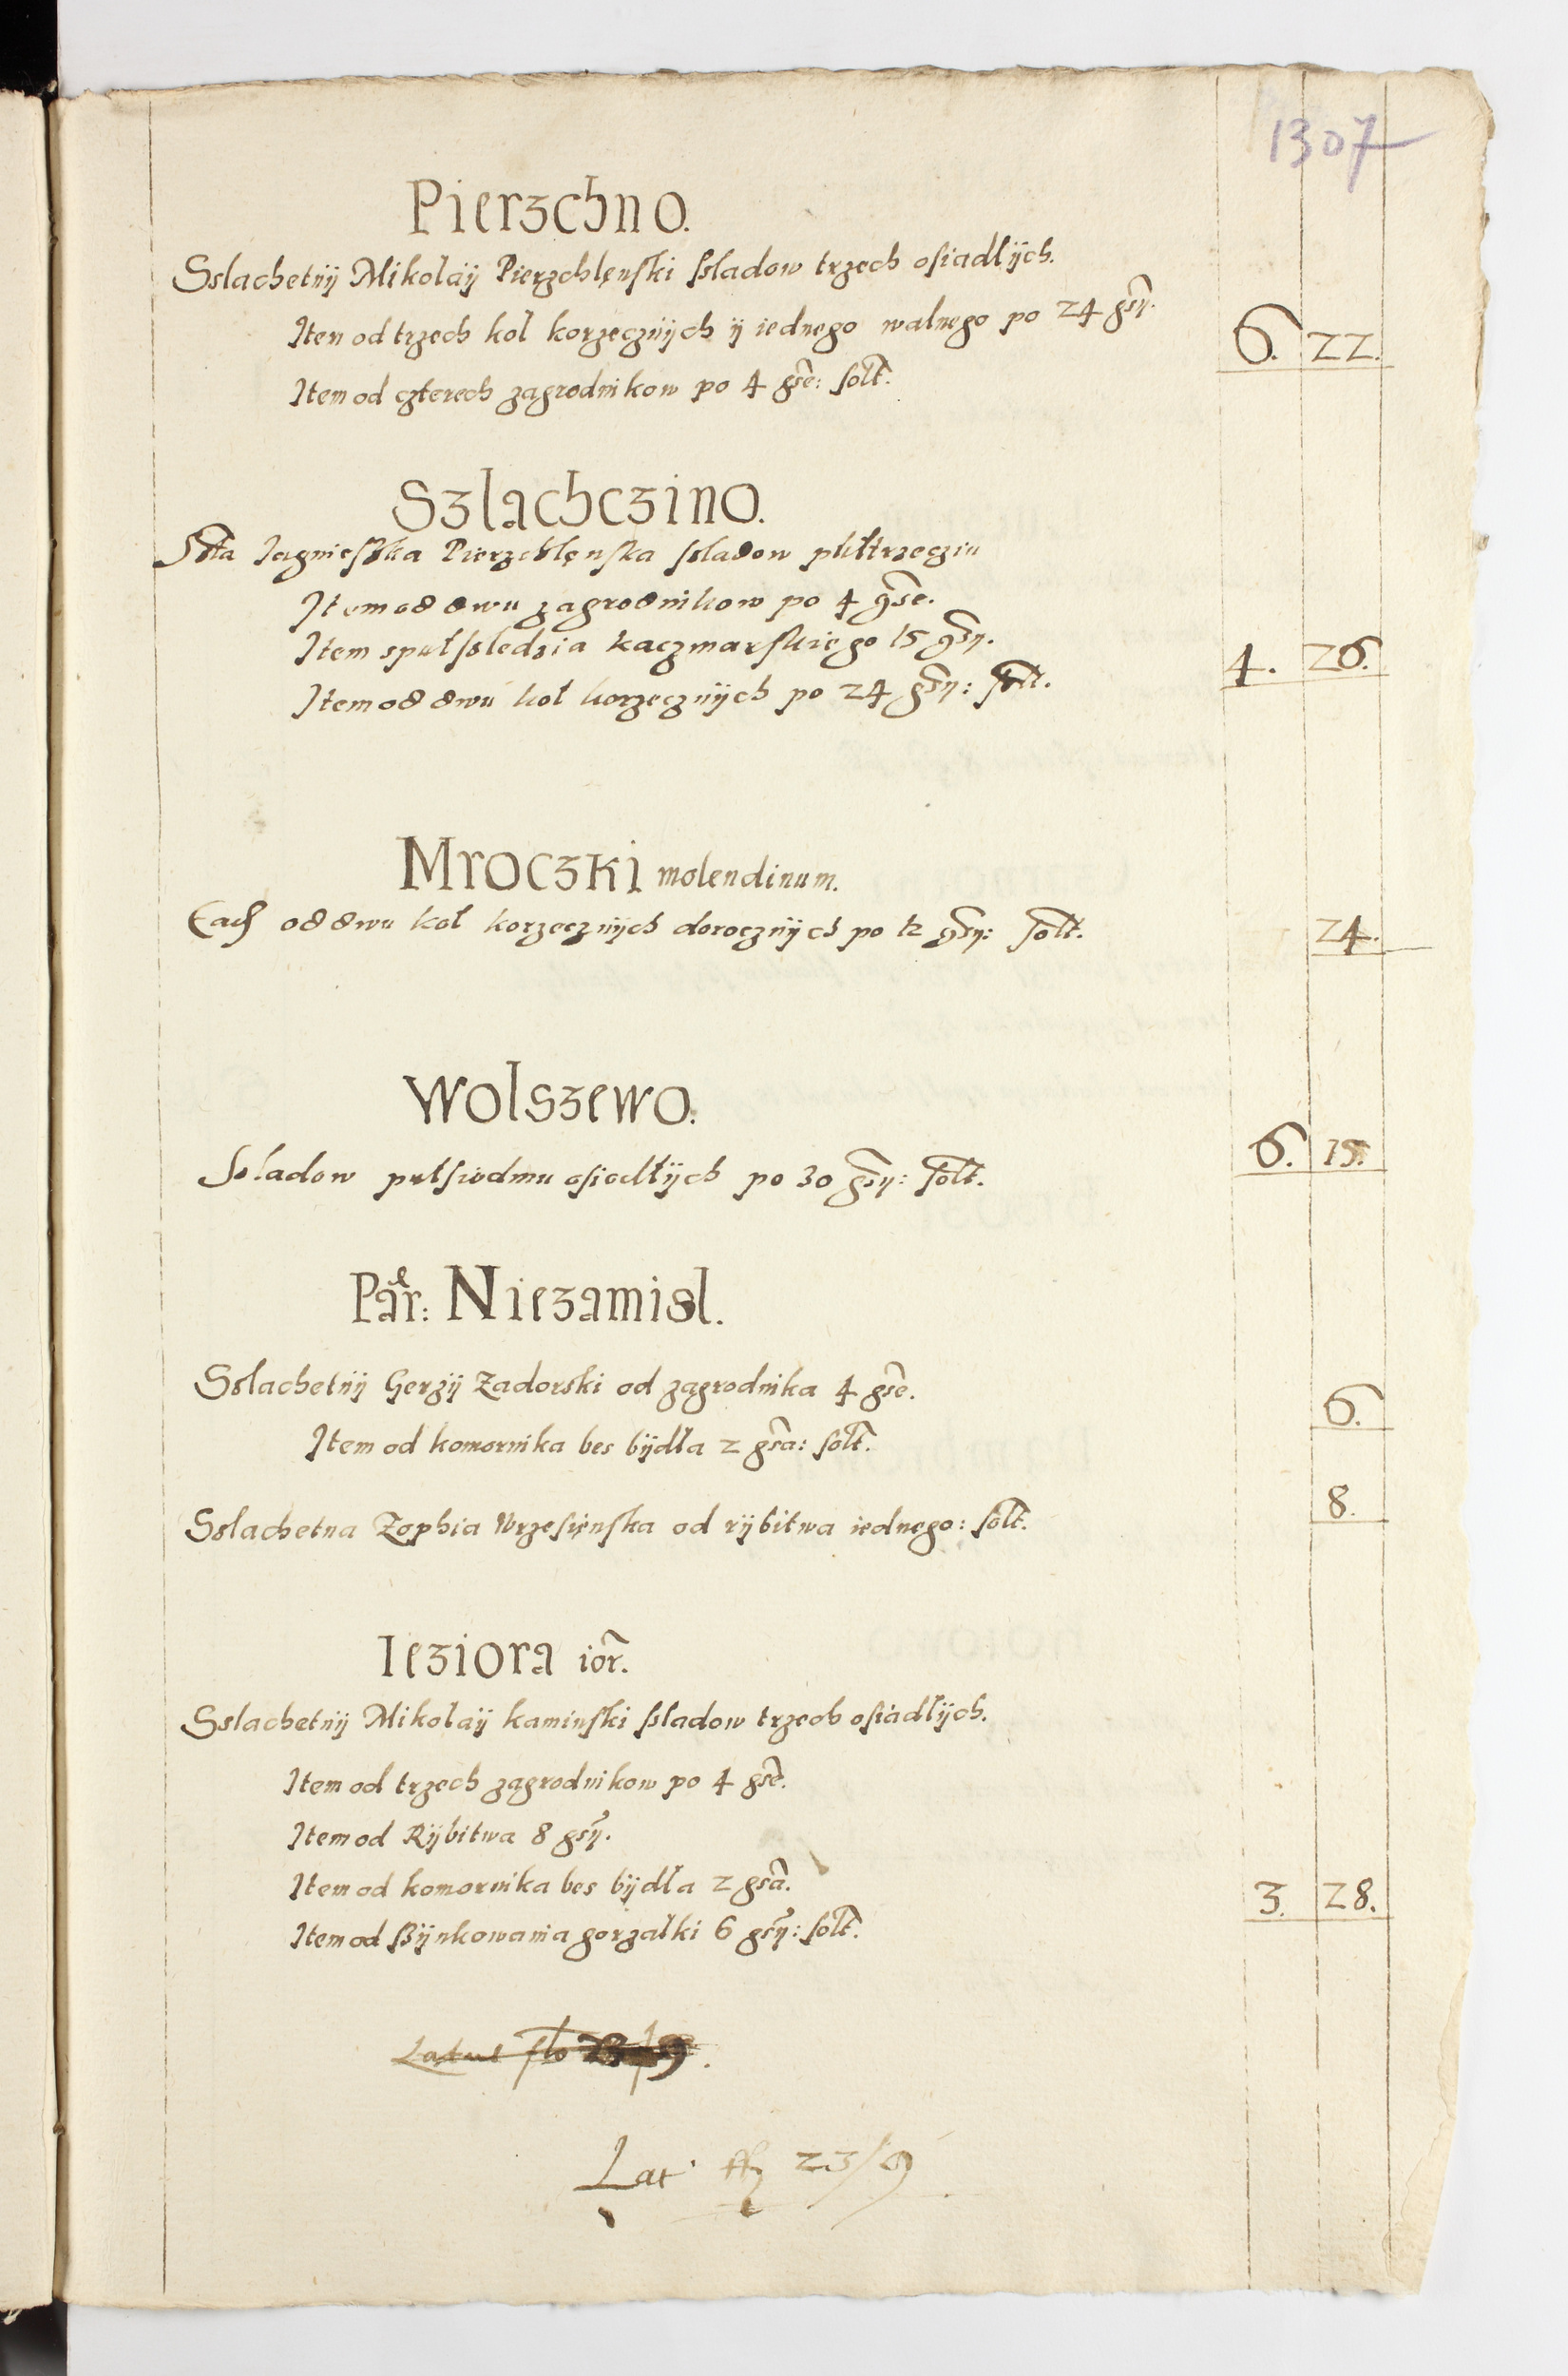 1307
Pierzchno.
Sslachetnÿ Mikołaÿ Pierzchlęnski sladow trzech osiadłÿch.
Item od trzech koł korzecznÿch ÿ iednego walnego po 24 gsÿ.
6. 22.
Item od czterech zagrodnikow po 4 gse: solt.
Szlachczino.
Słta Jagnieszka Pierzchlęnska sladow pułtrzeciu
Item od dwu zagrodnikow po 4 gse.
Item spułsledzia kaczmarskiego 15 gsÿ.
4. 26.
Item od dwu koł korzecznÿch po 24 gsÿ: solt.
Mroczki molendinum.
Eadē od dwu koł korzecznÿch dorocznÿch po 12 gsÿ: solt.
24.
Wolszewo.
Sladow pułsiodmu osiadłÿch po 30 gsÿ: solt.
6. 15.
Par: Niezamisl.
Sslachetnÿ Gerzÿ Zadorski od zagrodnika 4 gse.
6.
Item od komornika bes bÿdła 2 gsa: solt.
Sslachetna Zophia Wrzesięnska od rÿbitwa iednego: solt.
8.
Ieziora ior.
Sslachetnÿ Mikołaÿ kaminski sladow trzech osiadłÿch.
Item od trzech zagrodnikow po 4 gse.
Item od Rÿbitwa 8 gsÿ.
Item od komornika bes bÿdła 2 gsa.
3. 28.
Item od ßÿnkowania gorzałki 6 gsÿ: solt.
Latus flo
Lat' ff 23/9